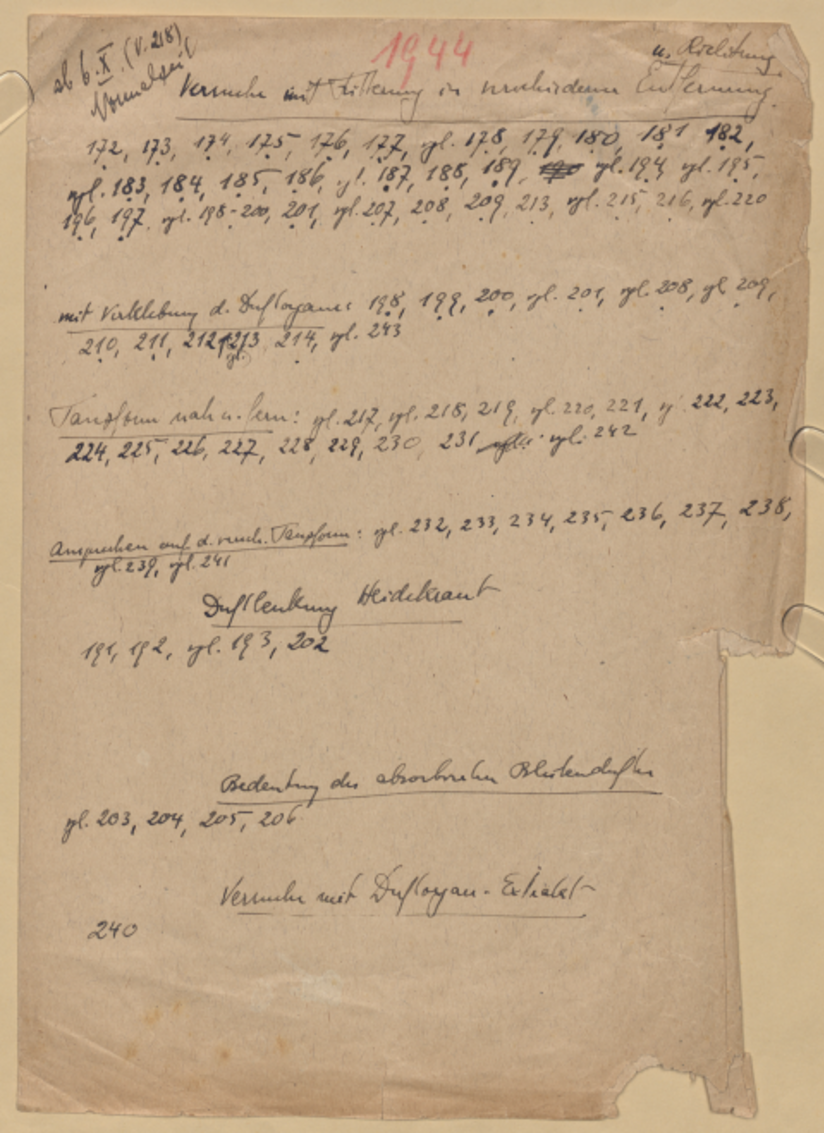 1944
ab 6. X. (V. 218)
Normalzeit
u. Richtung
Versuche mit Fütterung in verschiedener Entfernung
172, 173, 174, 175, 176, 177, vgl. 178, 179, 180, 181 182,
vgl. 183, 184, 185, 186, vgl. 187, 188, 189, vgl. 194, vgl. 195,
196, 197, vgl. 198-200, 201, vgl. 207, 208, 209, 213, vgl. 215, 216, vgl. 220
mit Verklebung d. Duftorgane: 198, 199, 200, vgl. 201, vgl. 208, vgl. 209,
210, 211, 212, vgl. 213, 214, vgl. 243
Tanzform nah u. fern: vgl. 217, vgl. 218, 219, vgl. 220, 221, vgl. 222, 223,
224, 225, 226, 227, 228, 229, 230, 231 vgl. 242
Ansprechen auf d. versch. Tanzform: vgl. 232, 233, 234, 235, 236, 237, 238,
vgl. 239, vgl. 241
Duftlenkung Heidekraut
191, 192, vgl. 193, 202
Bedeutung des absorbierten Blütenduftes
vgl. 203, 204, 205, 206
Versuche mit Duftorgan-Extrakt
240